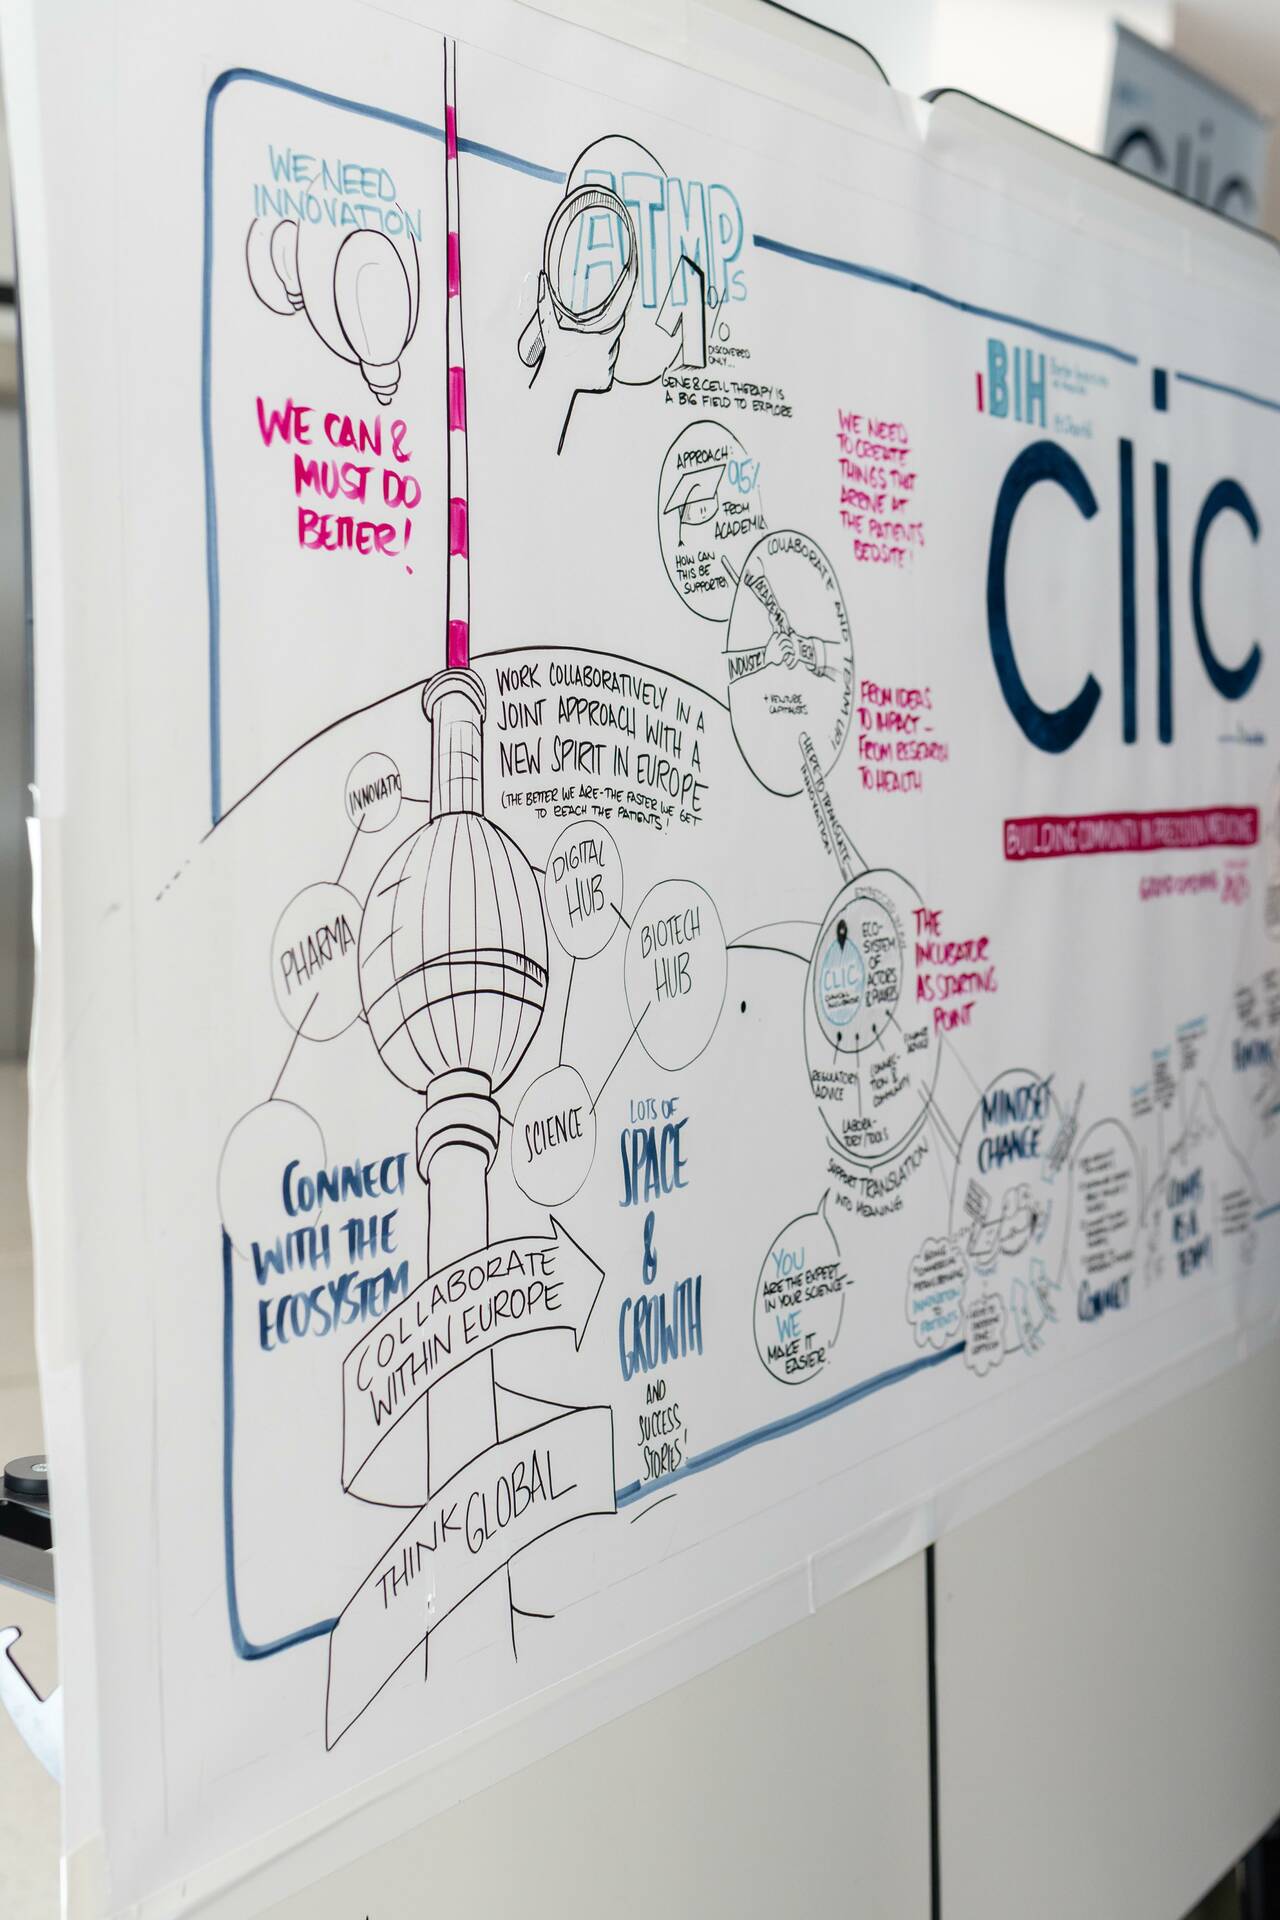 WE NEED
INNOVATION
WE CAN &
MUST DO
BETTER!
ATMPs
1%
DISCOVERED
ONLY...
GENE & CELL THERAPY IS
A BIG FIELD TO EXPLORE
APPROACH:
95%
FROM
ACADEMIA
HOW CAN
THIS BE
SUPPORTED
WE NEED
TO CREATE
THINGS THAT
ARRIVE AT
THE PATIENTS
BEDSITE!
COLLABORATE AND TEAM UP!
ACADEMIA
INDUSTRY
TECH
+ VENTURE
CAPITALISTS
FROM IDEAS
TO IMPACT –
FROM RESEARCH
TO HEALTH
HERE TO TRANSLATE
INNOVATION
BIH
clic
BUILDING COMMUNITY IN PRECISION MEDICINE
GRAND OPENING
WORK COLLABORATIVELY IN A
JOINT APPROACH WITH A
NEW SPIRIT IN EUROPE
(THE BETTER WE ARE - THE FASTER WE GET
TO REACH THE PATIENTS!
INNOVATIO
PHARMA
DIGITAL
HUB
BIOTECH
HUB
SCIENCE
CONNECT
WITH THE
ECOSYSTEM
LOTS OF
SPACE
&
GROWTH
AND
SUCCESS
STORIES!
COLLABORATE
WITHIN EUROPE
THINK GLOBAL
CLIC
ECO-
SYSTEM
OF
ACTORS
& PLAYERS
THE
INCUBATOR
AS STARTING
POINT
REGULATORY
ADVICE
LABORA-
TORY/TOOLS
CONNEC-
TION &
COMMUNITY
SUPPORT TRANSLATION
INTO MEANING
YOU
ARE THE EXPERT
IN YOUR SCIENCE –
WE
MAKE IT
EASIER!
MINDSET
CHANGE
INNOVATION
TO
PATIENTS
CONNECT
clic